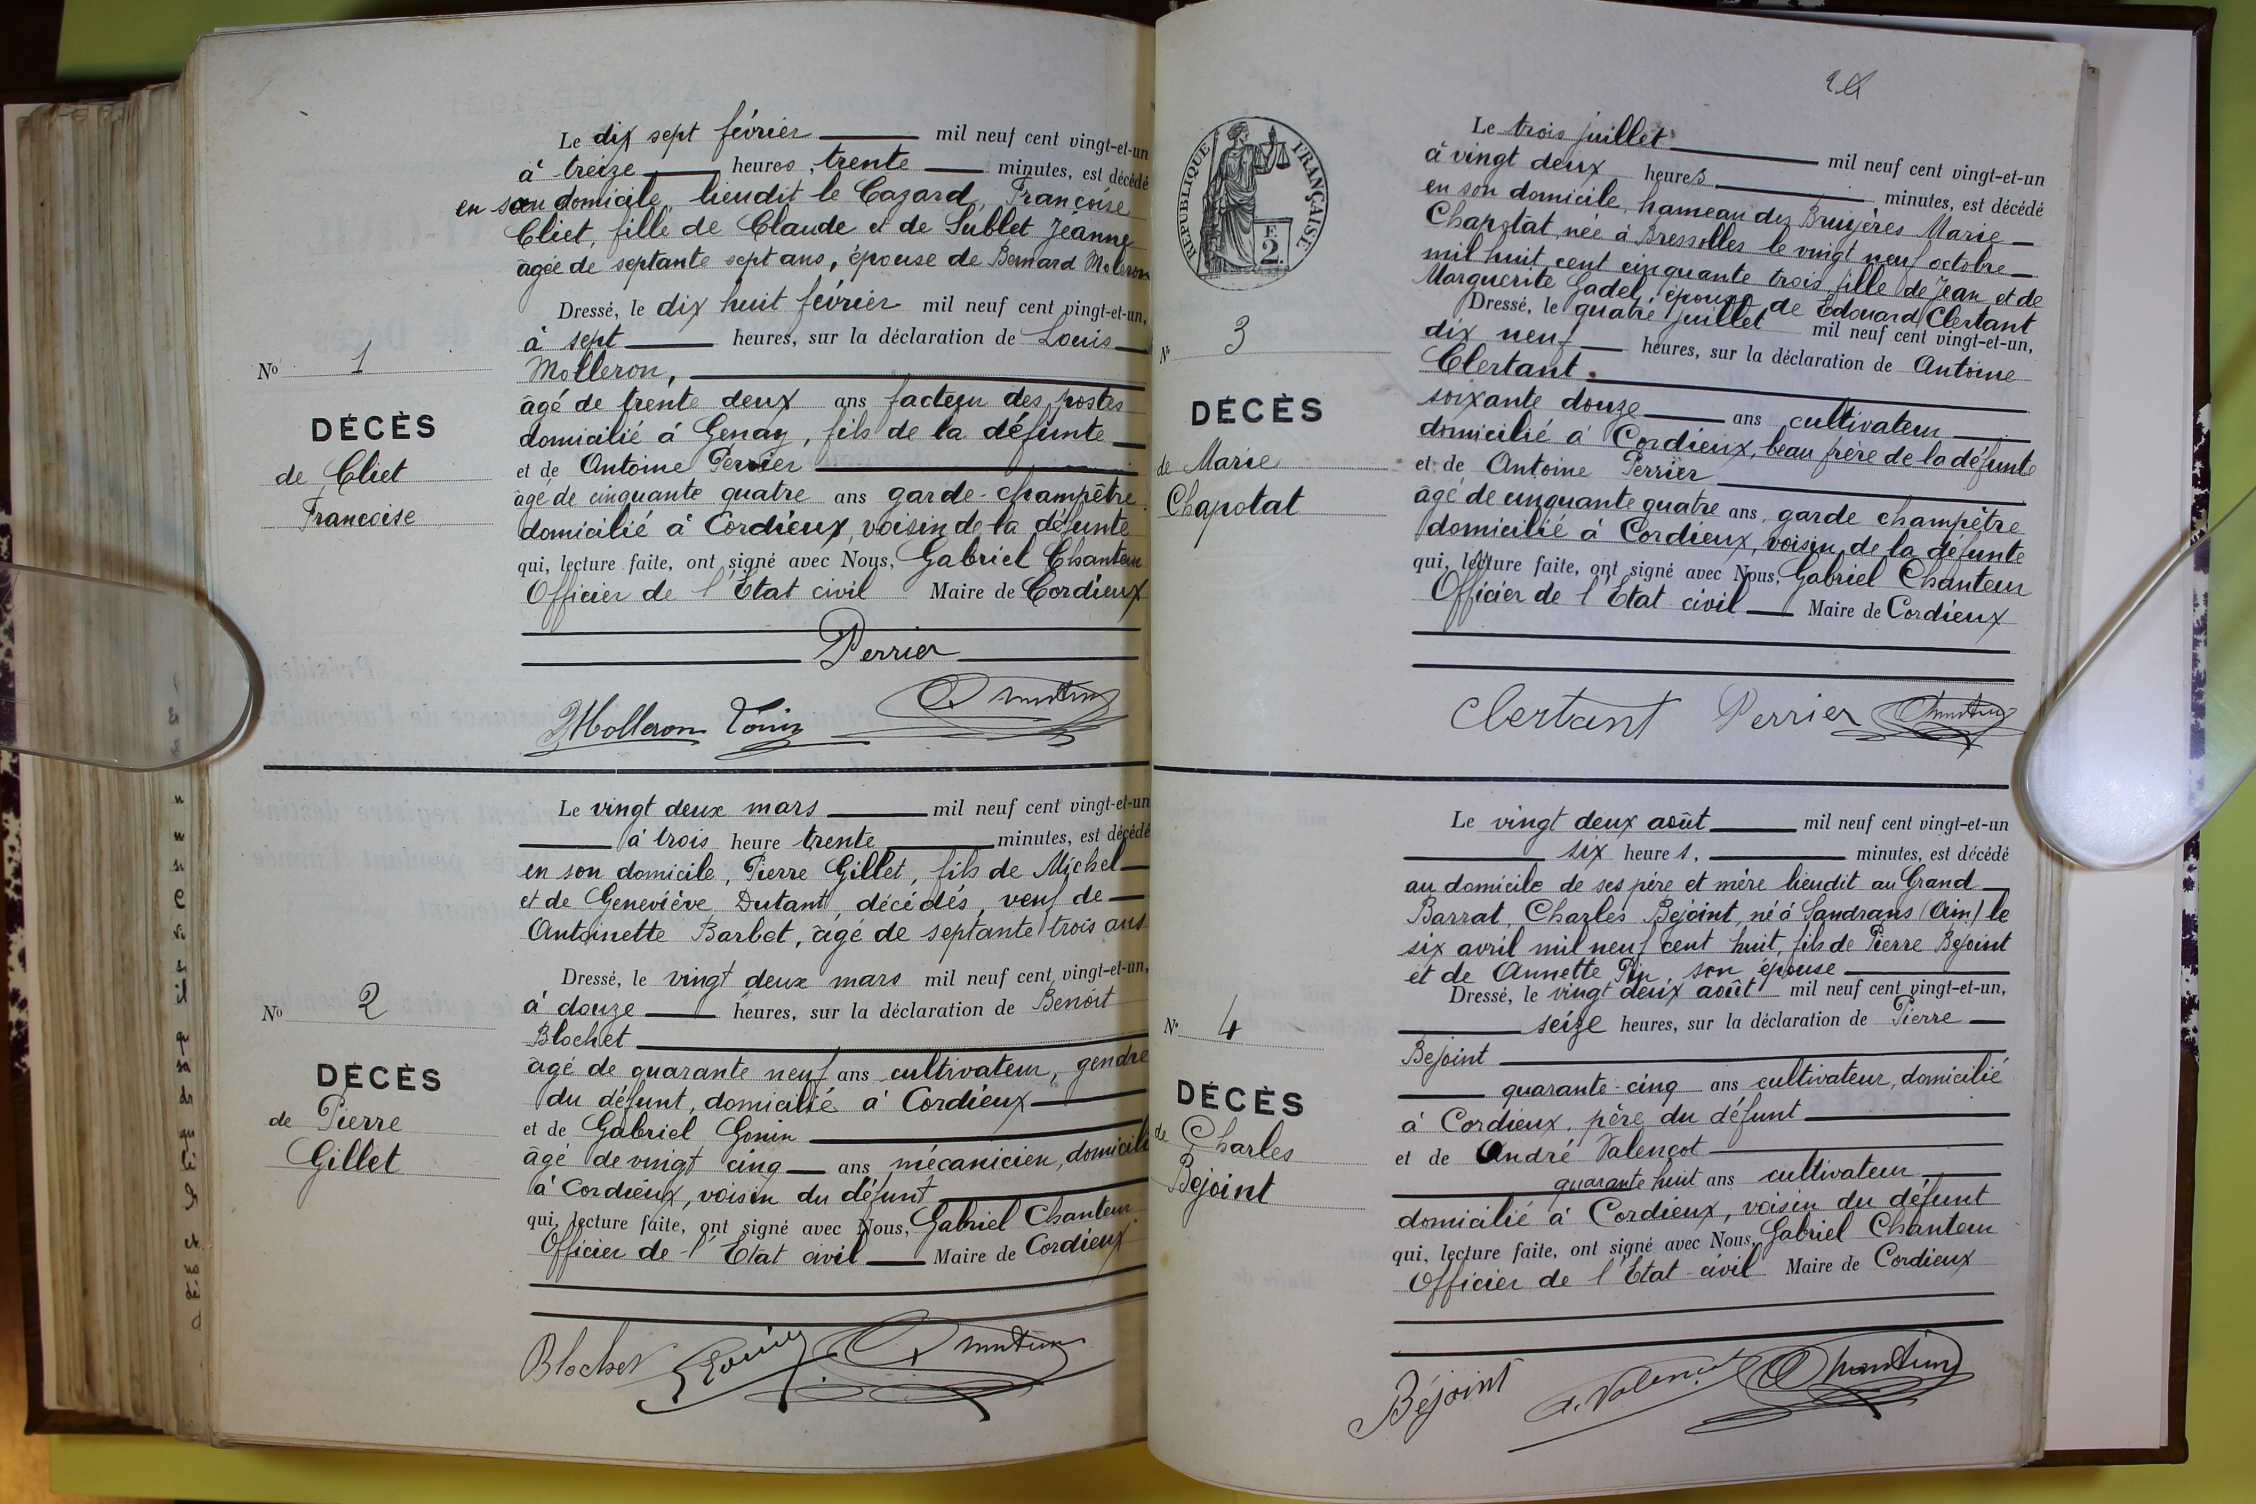 Le dix sept février mil neuf cent vingt-et-un
à treize heures, trente minutes, est décédé
en son domicile, lieudit le Cazard, Françoise
Cliet, fille de Claude et de Sublet Jeanne
âgée de septante sept ans, épouse de Bernard Moleron
Dressé, le dix huit février mil neuf cent vingt-et-un,
à sept heures, sur la déclaration de Louis
Molleron,
âgé de trente deux ans facteur des postes
domicilié à Genay, fils de la défunte
et de Antoine Perrier
âgé de cinquante quatre ans garde-champêtre
domicilié à Cordieux, voisin de la défunte
qui, lecture faite, ont signé avec Nous, Gabriel Chanteur
Officier de l'Etat civil Maire de Cordieux
Perrier
Molleron Louis
No 1
DÉCÈS
de Cliet
Francoise
Le vingt deux mars mil neuf cent vingt-et-un
à trois heure trente minutes, est décédé
en son domicile, Pierre Gillet, fils de Michel
et de Geneviève Dutant, décédés, veuf de
Antoinette Barbet, âgé de septante trois ans
Dressé, le vingt deux mars mil neuf cent vingt-et-un,
à douze heures, sur la déclaration de Benoit
Blochet
âgé de quarante neuf ans cultivateur, gendre
du défunt, domicilié à Cordieux
et de Gabriel Gonin
âgé de vingt cinq ans mécanicien, domicilié
à Cordieux, voisin du défunt
qui, lecture faite, ont signé avec Nous, Gabriel Chanteur
Officier de l'Etat civil Maire de Cordieux
Blochet Gonin
No 2
DÉCÈS
de Pierre
Gillet
RÉPUBLIQUE FRANÇAISE
F.
2.
Le trois juillet mil neuf cent vingt-et-un
à vingt deux heures minutes, est décédé
en son domicile, hameau des Bruyères Marie
Chapotat, née à Bressolles le vingt neuf octobre
mil huit cent cinquante trois, fille de Jean et de
Marguerite Gadel, épouse de Edouard Clertant
Dressé, le quatre juillet mil neuf cent vingt-et-un,
dix neuf heures, sur la déclaration de Antoine
Clertant
soixante douze ans cultivateur
domicilié à Cordieux, beau frère de la défunte
et de Antoine Perrier
âgé de cinquante quatre ans, garde champêtre
domicilié à Cordieux, voisin de la défunte
qui, lecture faite, ont signé avec Nous, Gabriel Chanteur
Officier de l'Etat civil Maire de Cordieux
Clertant Perrier
No 3
DÉCÈS
de Marie
Chapotat
Le vingt deux août mil neuf cent vingt-et-un
six heures, minutes, est décédé
au domicile de ses père et mère lieudit au Grand
Barrat, Charles Bejoint, né à Sandrans (Ain) le
six avril mil neuf cent huit, fils de Pierre Bejoint
et de Annette Pin, son épouse
Dressé, le vingt deux août mil neuf cent vingt-et-un,
seize heures, sur la déclaration de Pierre
Bejoint
quarante-cinq ans cultivateur, domicilié
à Cordieux, père du défunt
et de André Valençot
quarante huit ans cultivateur
domicilié à Cordieux, voisin du défunt
qui, lecture faite, ont signé avec Nous, Gabriel Chanteur
Officier de l'Etat civil Maire de Cordieux
Béjoint A. Valençot
No 4
DÉCÈS
de Charles
Bejoint